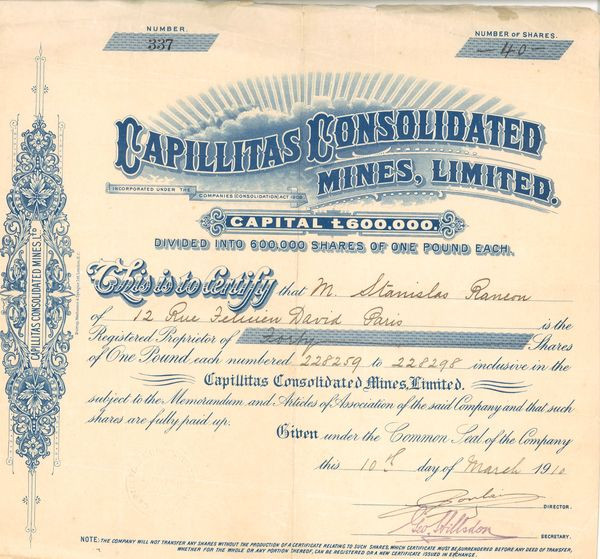 NUMBER.
337
NUMBER OF SHARES.
40
CAPILLITAS CONSOLIDATED
MINES, LIMITED.
INCORPORATED UNDER THE COMPANIES (CONSOLIDATION) ACT 1908
CAPITAL £600.000.
DIVIDED INTO 600.000 SHARES OF ONE POUND EACH.
CAPILLITAS CONSOLIDATED MINES, LTD.
This is to Certify that M. Stanislas Rancon
of 12 Rue Felicien David Paris is the
Registered Proprietor of Forty Shares
of One Pound each numbered 228259 to 228298 inclusive in the
Capillitas Consolidated Mines, Limited.
subject to the Memorandum and Articles of Association of the said Company and that such
shares are fully paid up.
Given under the Common Seal of the Company
this 10th day of March 1910
DIRECTOR.
Geo Hillsdon
SECRETARY.
NOTE: THE COMPANY WILL NOT TRANSFER ANY SHARES WITHOUT THE PRODUCTION OF A CERTIFICATE RELATING TO SUCH SHARES, WHICH CERTIFICATE MUST BE SURRENDERED BEFORE ANY DEED OF TRANSFER
WHETHER FOR THE WHOLE OR ANY PORTION THEREOF, CAN BE REGISTERED OR A NEW CERTIFICATE ISSUED IN EXCHANGE.